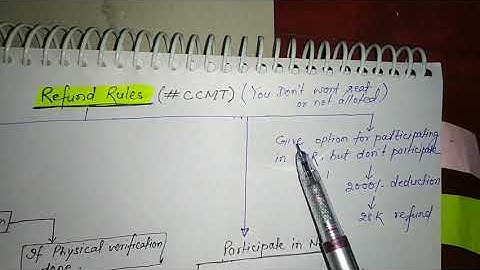 Refund Rules (#CCMT) (You Don't want seat
or not alloted)
Give option for participating
in R, but don't participate
2000/- deduction
28K refund
If Physical verification
done
Participate in N